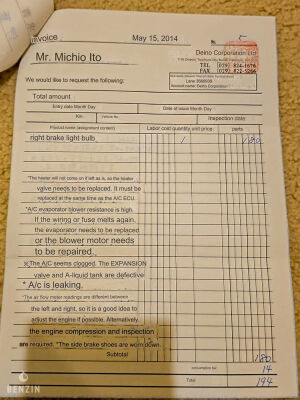 nvoice
May 15, 2014
5
Deino Corporation Ltd
Mr. Michio Ito
TEL (029) 824-1676
FAX (029) 822-5266
We would like to request the following:
Account name: Deino Corporation
Total amount
Entry date Month Day
Date of issue Month Day
Km
Vehicle No
Inspection date
Product name (assignment content)
Labor cost quantity unit price
parts
right brake light bulb
1
180
*The heater will not come on if left as is, so the heater
valve needs to be replaced. It must be
replaced at the same time as the A/C ECU.
*A/C evaporator blower resistance is high.
If the wiring or fuse melts again,
the evaporator needs to be replaced
or the blower motor needs
to be repaired.
※The A/C seems clogged. The EXPANSION
valve and A-liquid tank are defective
* A/c is leaking.
*The air flow meter readings are different between
the left and right, so it is a good idea to
adjust the engine if possible. Alternatively,
the engine compression and inspection
are required. *The side brake shoes are worn down.
Subtotal
180
consumption tax
14
Total
194
BENZIN